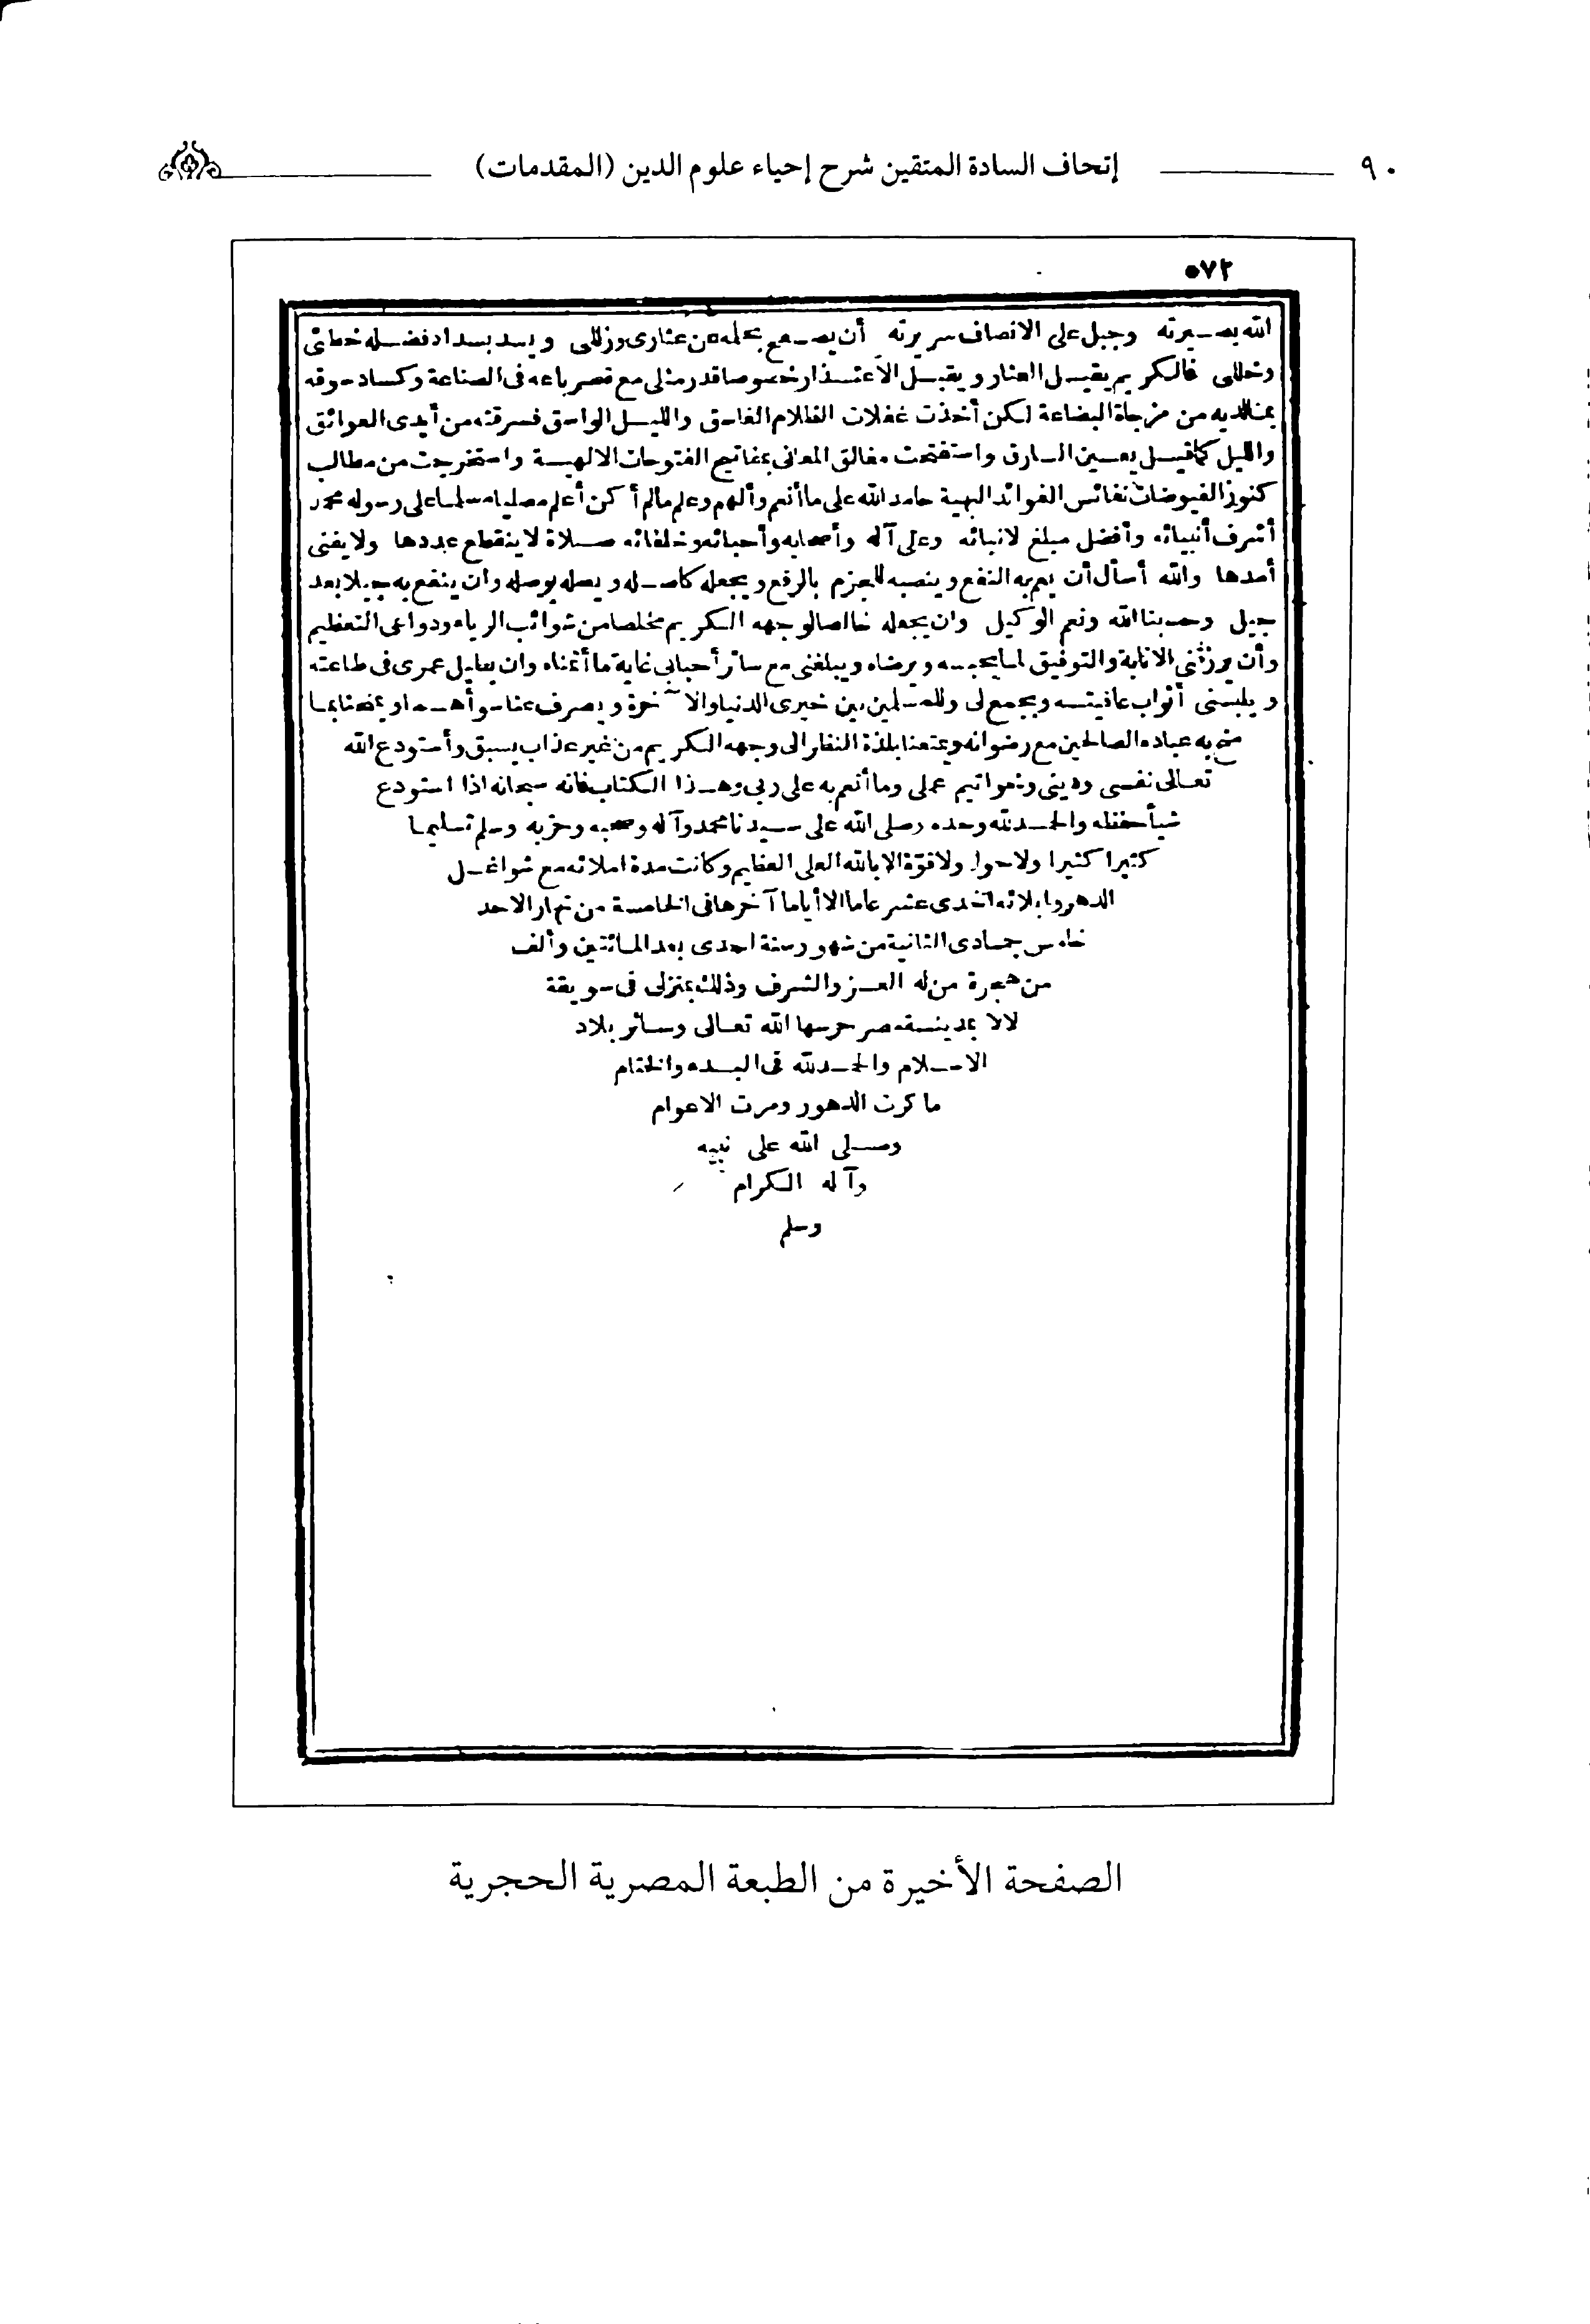 ٩٠ إتحاف السادة المتقين شرح إحياء علوم الدين (المقدمات)
٥٧٢
الله بصيرته وجبل على الانصاف سريرته أن يصفح بحلمه عن عثارى وزللى ويسد بسداد فضله خطائى
وخللى فالكريم يقيل العثار ويقبل الاعتذار خصوصا قدر مثلى مع قصر باعه فى الصناعة وكساد سوقه
بمالديه من مزجاة البضاعة لكن أخذت غفلات الظلام الغاسق والليل الواسق فسرقته من أيدى العوائق
والليل كما قيل يعين السارق واستفتحت مغالق المعانى بمفاتيح الفتوحات الالهية واستخرجت من مطالب
كنوز الفيوضات نفائس الفوائد البهية حامد الله على ما أنعم وألهم وعلم مالم أكن أعلم مصليا مسلما على رسوله محمد
أشرف أنبيائه وأفضل مبلغ لانبائه وعلى آله وأصحابه وأحبائه وخلفائه صلاة لا ينقطع عددها ولا يفنى
أمدها والله أسأل أن يعم به النفع وينصبه للجزم بالرفع ويجعله كاصله ويصله بوصله وان ينفع به جيلا بعد
جيل وحسبنا الله ونعم الوكيل وان يجعله خالصا لوجهه الكريم مخلصا من شوائب الرياء ودواعى التعظيم
وأن يرزقنى الانابة والتوفيق لما يحبه ويرضاه ويبلغنى مع سائر أحبابى غاية ما أتمناه وان يطيل عمرى فى طاعته
ويلبسنى أثواب عافيته ويجمع لى وللمسلمين بين خيرى الدنيا والآخرة ويصرف عنا سوأهما ويمنحنا بما
منح به عباده الصالحين مع رضوانه ويمتعنا بلذة النظر الى وجهه الكريم من غير عذاب يسبق وأستودع الله
تعالى نفسى ودينى وخواتيم عملى وما أنعم به على ربى وهذا الكتاب فانه سبحانه اذا استودع
شيأ حفظه والحمد لله وحده وصلى الله على سيدنا محمد وآله وصحبه وحزبه وسلم تسليما
كثيرا كثيرا ولا حول ولا قوّة الا بالله العلى العظيم وكانت مدة املائه مع شواغل
الدهر وابلائه احدى عشر عاما الا أياما آخرها فى الخامسة من نهار الاحد
خامس جمادى الثانية من شهور سنة احدى بعد المائتين وألف
من هجرة من له العز والشرف وذلك بمنزلى فى سويقة
لالا بمدينة مصر حرسها الله تعالى وسائر بلاد
الاسلام والحمد لله فى البدء والختام
ما كرت الدهور ومرت الاعوام
وصلى الله على نبيه
وآله الكرام
وسلم
الصفحة الأخيرة من الطبعة المصرية الحجرية